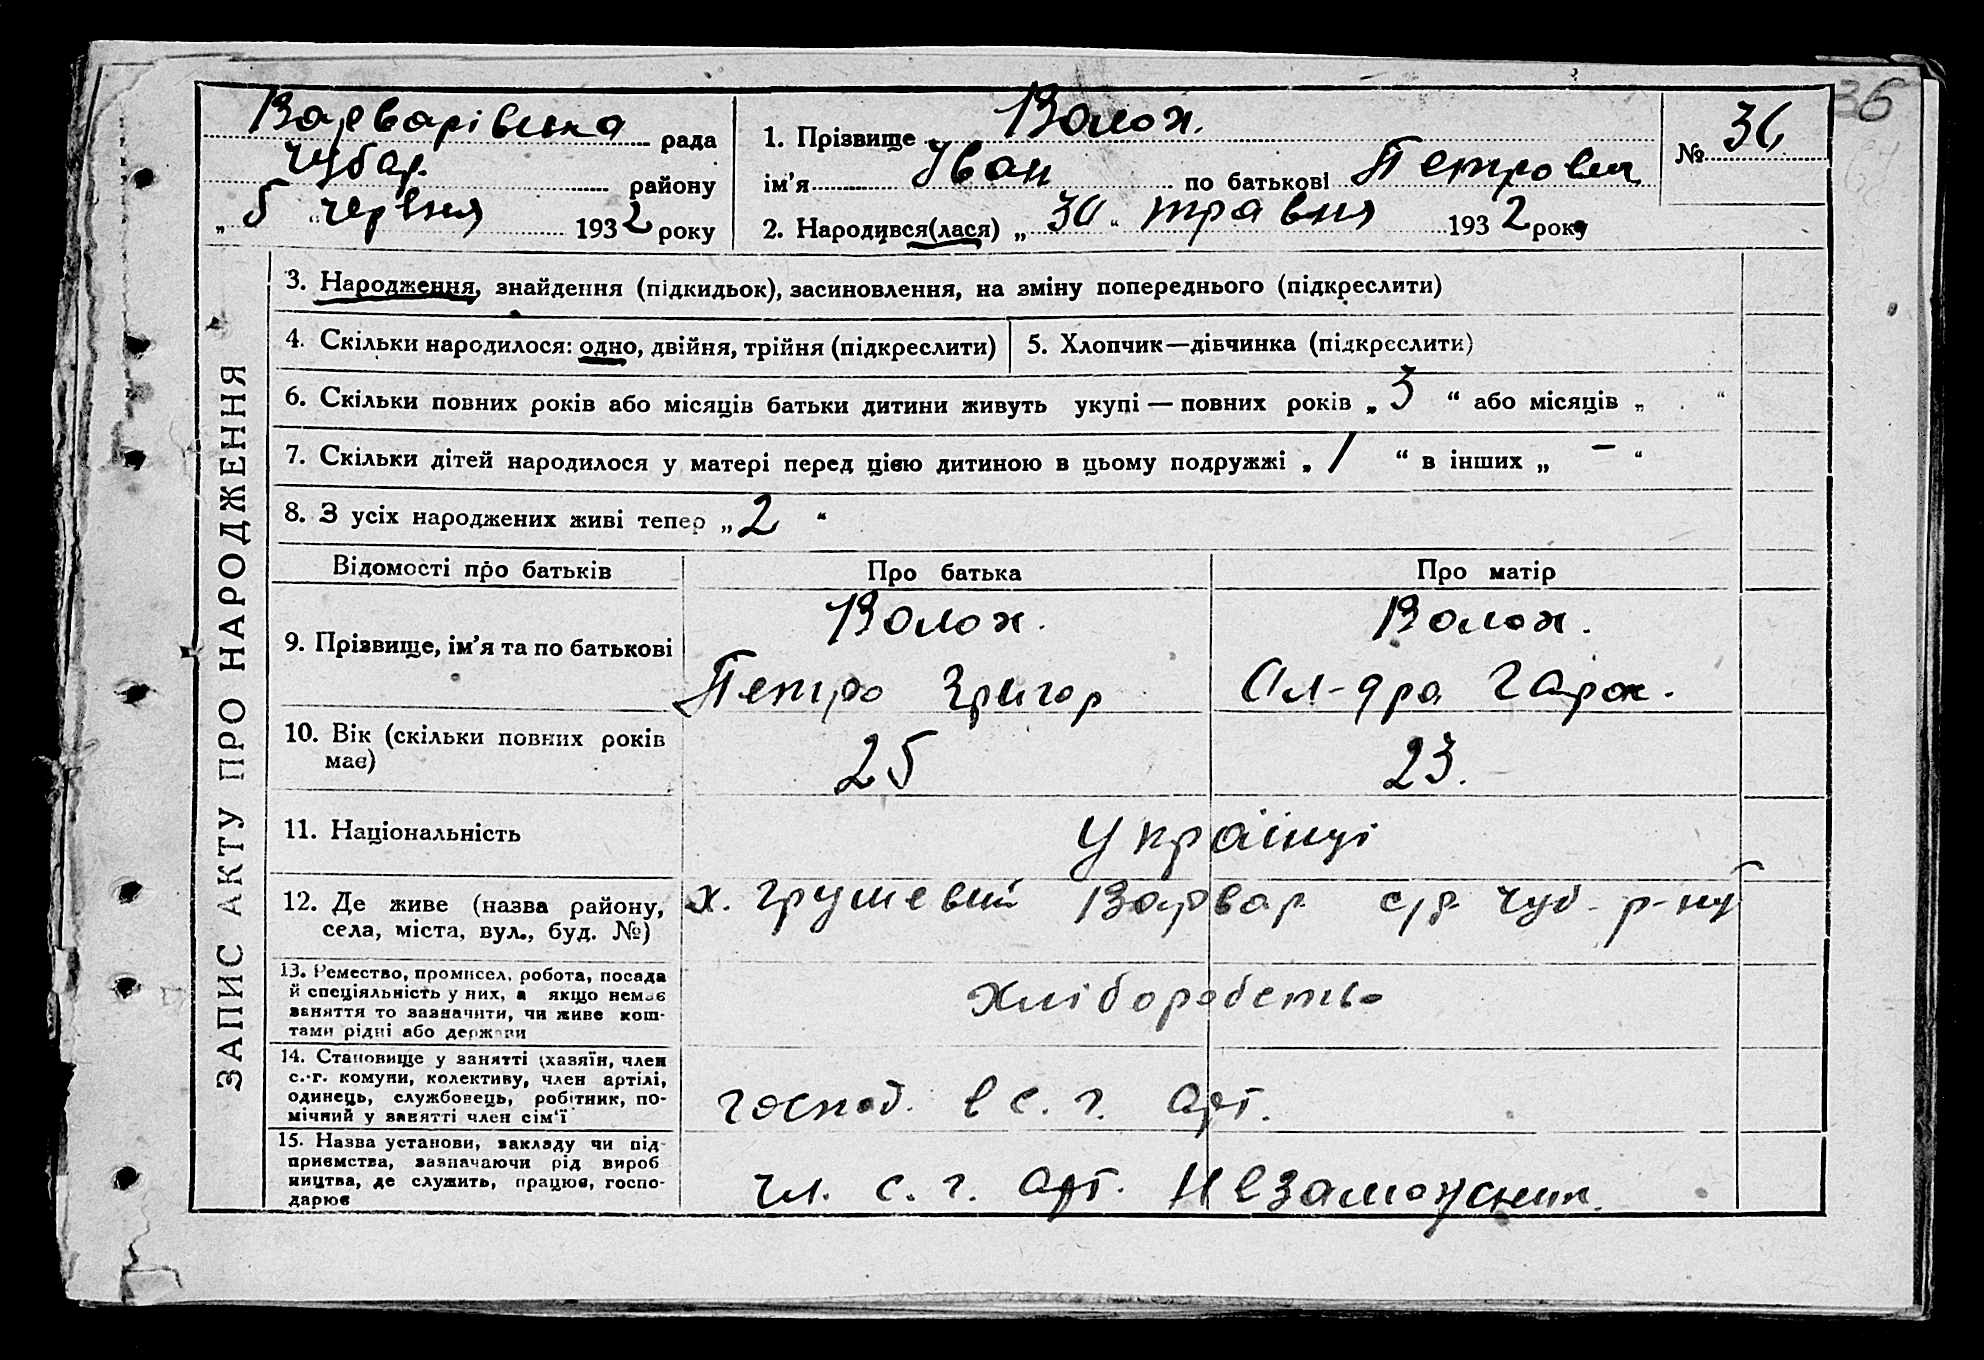 36
Варварівська рада
Чубар. району
„ 5 “ червня 1932 року
1. Прізвище Волох.
ім’я Іван по батькові Петрович
2. Народився(лася) „ 30 “ травня 1932 року
№ 36
ЗАПИС АКТУ ПРО НАРОДЖЕННЯ
3. Народження, знайдення (підкидьок), засиновлення, на зміну попереднього (підкреслити)
4. Скільки народилося: одно, двійня, трійня (підкреслити)
5. Хлопчик—дівчинка (підкреслити)
6. Скільки повних років або місяців батьки дитини живуть укупі — повних років „ 3 “ або місяців „ “
7. Скільки дітей народилося у матері перед цією дитиною в цьому подружжі „ 1 “ в інших „ – “
8. З усіх народжених живі тепер „ 2 “
Відомості про батьків
Про батька
Про матір
9. Прізвище, ім’я та по батькові
Волох.
Петро Григор
Волох.
Ол-дра
10. Вік (скільки повних років
має)
25
23.
11. Національність
Українці
12. Де живе (назва району,
села, міста, вул., буд. №)
х. Грушевий Варвар с/р Чуб. р-ну
13. Ремество, промисел, робота, посада
й спеціяльність у них, а якщо немає
заняття то зазначити, чи живе кош-
тами рідні або держави
Хліборобство
14. Становище у занятті (хазяїн, член
с.-г. комуни, колективу, член артілі,
одинець, службовець, робітник, по-
мічний у занятті член сім‘ї
господ. в с. г. арт.
15. Назва установи, закладу чи під-
приємства, зазначаючи рід вироб
ництва, де служить, працює, госпо-
дарює
чл. с. г. арт. Незаможник.